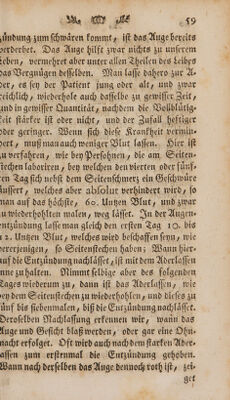 59
zündung zum schwären kommt, ist das Auge bereits
verderbet. Das Auge hilft zwar nichts zu unserem
Leben, vermehret aber unter allen Theilen des Leibes
das Vergnügen desselben. Man lasse dahero zur A-
der, es sey der Patient jung oder alt, und zwar
reichlich, wiederhole auch dasselbe zu gewisser Zeit,
und in gewisser Quantität, nachdem die Vollblütig-
keit stärker ist oder nicht, und der Zufall heftiger
oder geringer. Wenn sich diese Krankheit vermin-
dert, muß man auch weniger Blut lassen. Hier ist
zu verfahren, wie bey Persohnen, die am Seiten-
stechen laboriren, bey welchen den vierten oder fünf-
ten Tag sich nebst dem Seitenschmerz ein Geschwär
äussert, welches aber absolut verhindert wird, so
man auf das höchste, 60. Untzen Blut, und zwar
zu wiederhohlten malen, weg lässet. In der Augen-
entzündung lasse man gleich den ersten Tag 10. bis
12. Untzen Blut, welches wird beschaffen seyn, wie
derjenigen, so Seitenstechen haben: Wann hier-
auf die Entzündung nachlässet, ist mit dem Aderlassen
inne zu halten. Nimmt selbige aber des folgenden
Tages wiederum zu, dann ist das Aderlassen, wie
bey dem Seitenstechen zu wiederhohlen, und dieses zu
fünf bis siebenmalen, biß die Entzündung nachlässet.
Deroselben Nachlassung erkennen wir, wann das
Auge und Gesicht blaß werden, oder gar eine Ohn-
macht erfolget. Oft wird auch nach dem starken Ader-
lassen zum erstenmal die Entzündung gehoben.
Wann nach derselben das Auge dennoch roth ist, zei-
get